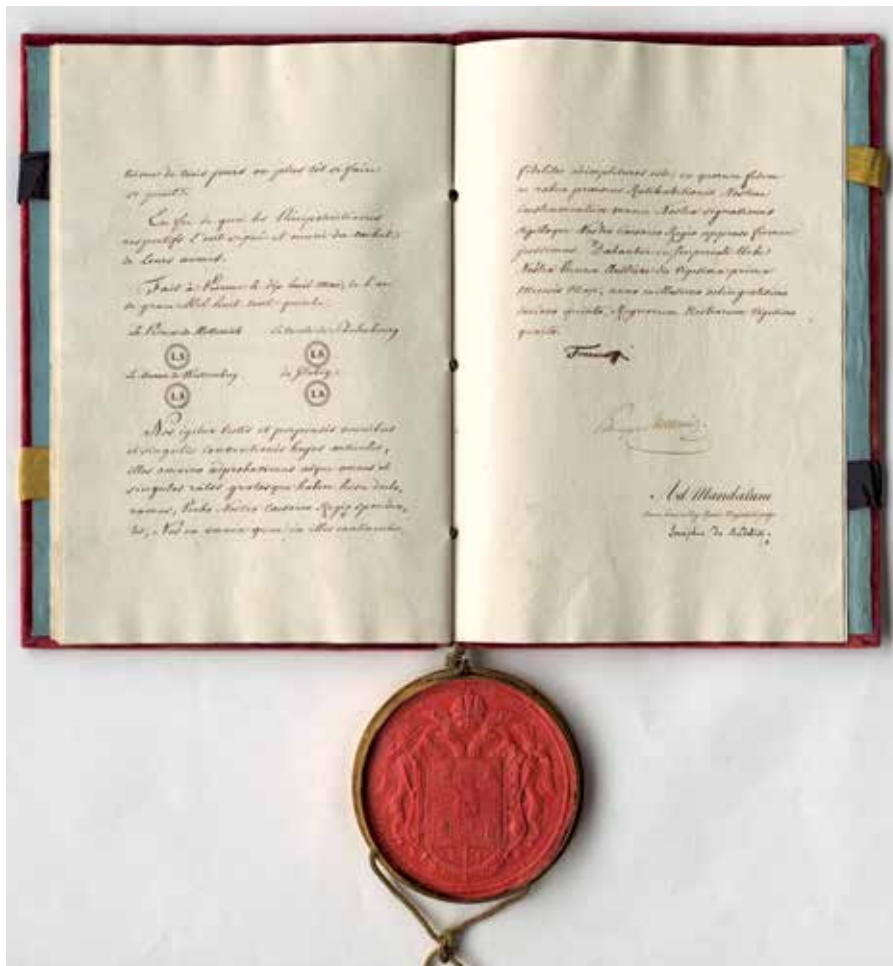 terme de trois jours ou plus tôt si faire
se peut.
En foi de quoi les Plénipotentiaires
respectifs l'ont signé et muni du cachet
de leurs armes.
Fait à Vienne le dix huit Mai, de l'an
de grace Mil huit cent quinze.
Le Prince de Metternich Le Comte de Schulenbourg
L.S L.S
Le Baron de Wessenberg de Globig.
L.S L.S
Nos igitur visis et perpensis omnibus
et singulis conventionis hujus articulis,
illos omnino approbavimus atque omnes et
singulos ratos gratosque habere hisce decla-
ramus, Verbo Nostro Caesareo Regio sponden-
tes, Nos ea omnia quae in illis continentur
fideliter adimpleturos esse; in quorum fidem
ac robur praesens Ratihabitionis Nostrae
instrumentum manu Nostra signavimus
sigilloque Nostro Caesareo Regio appenso firmari
jussimus. Dabantur in Imperiali Urbe
Nostra Vienna Austriae die Vigesima prima
Mensis Maji, anno millesimo octingentesimo
decimo quinto, Regnorum Nostrorum Vigesimo
quarto.
Metternich
Ad Mandatum
Josephus de Hudelist.